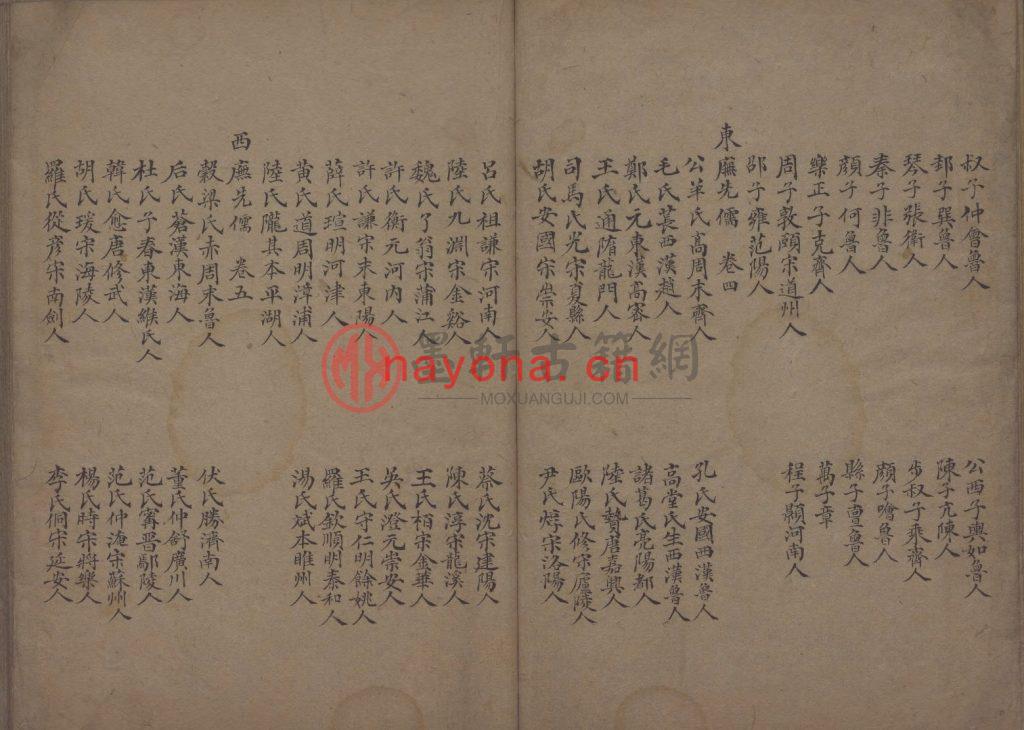 叔子仲會魯人
公西子輿如魯人
邽子巽魯人
陳子亢陳人
琴子張衛人
步叔子乘齊人
秦子非魯人
顏子噲魯人
顏子何魯人
縣子亶魯人
樂正子克齊人
萬子章
周子敦頤宋道州人
程子顥河南人
邵子雍范陽人
東廡先儒 卷四
公羊氏高周末齊人
孔氏安國西漢魯人
毛氏萇西漢趙人
高堂氏生西漢魯人
鄭氏元東漢高密人
諸葛氏亮陽都人
王氏通隋龍門人
陸氏贄唐嘉興人
司馬氏光宋夏縣人
歐陽氏修宋廬陵人
胡氏安國宋崇安人
尹氏焞宋洛陽人
呂氏祖謙宋河南人
蔡氏沈宋建陽人
陸氏九淵宋金谿人
陳氏淳宋龍溪人
魏氏了翁宋蒲江人
王氏栢宋金華人
許氏衡元河內人
吳氏澄元崇安人
許氏謙宋末東陽人
王氏守仁明餘姚人
薛氏瑄明河津人
羅氏欽順明泰和人
黃氏道周明漳浦人
湯氏斌本睢州人
陸氏隴其本平湖人
西廡先儒 卷五
穀梁氏赤周末魯人
伏氏勝濟南人
后氏蒼漢東海人
董氏仲舒廣川人
杜氏子春東漢緱氏人
范氏甯晉鄢陵人
韓氏愈唐修武人
范氏仲淹宋蘇州人
胡氏瑗宋海陵人
楊氏時宋將樂人
羅氏從彥宋南劍人
李氏侗宋延安人
墨軒古籍網
nayona.cn
MOXUANGUJI.COM